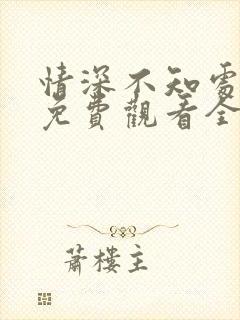 情深不知處
免費觀看全
蕭樓主